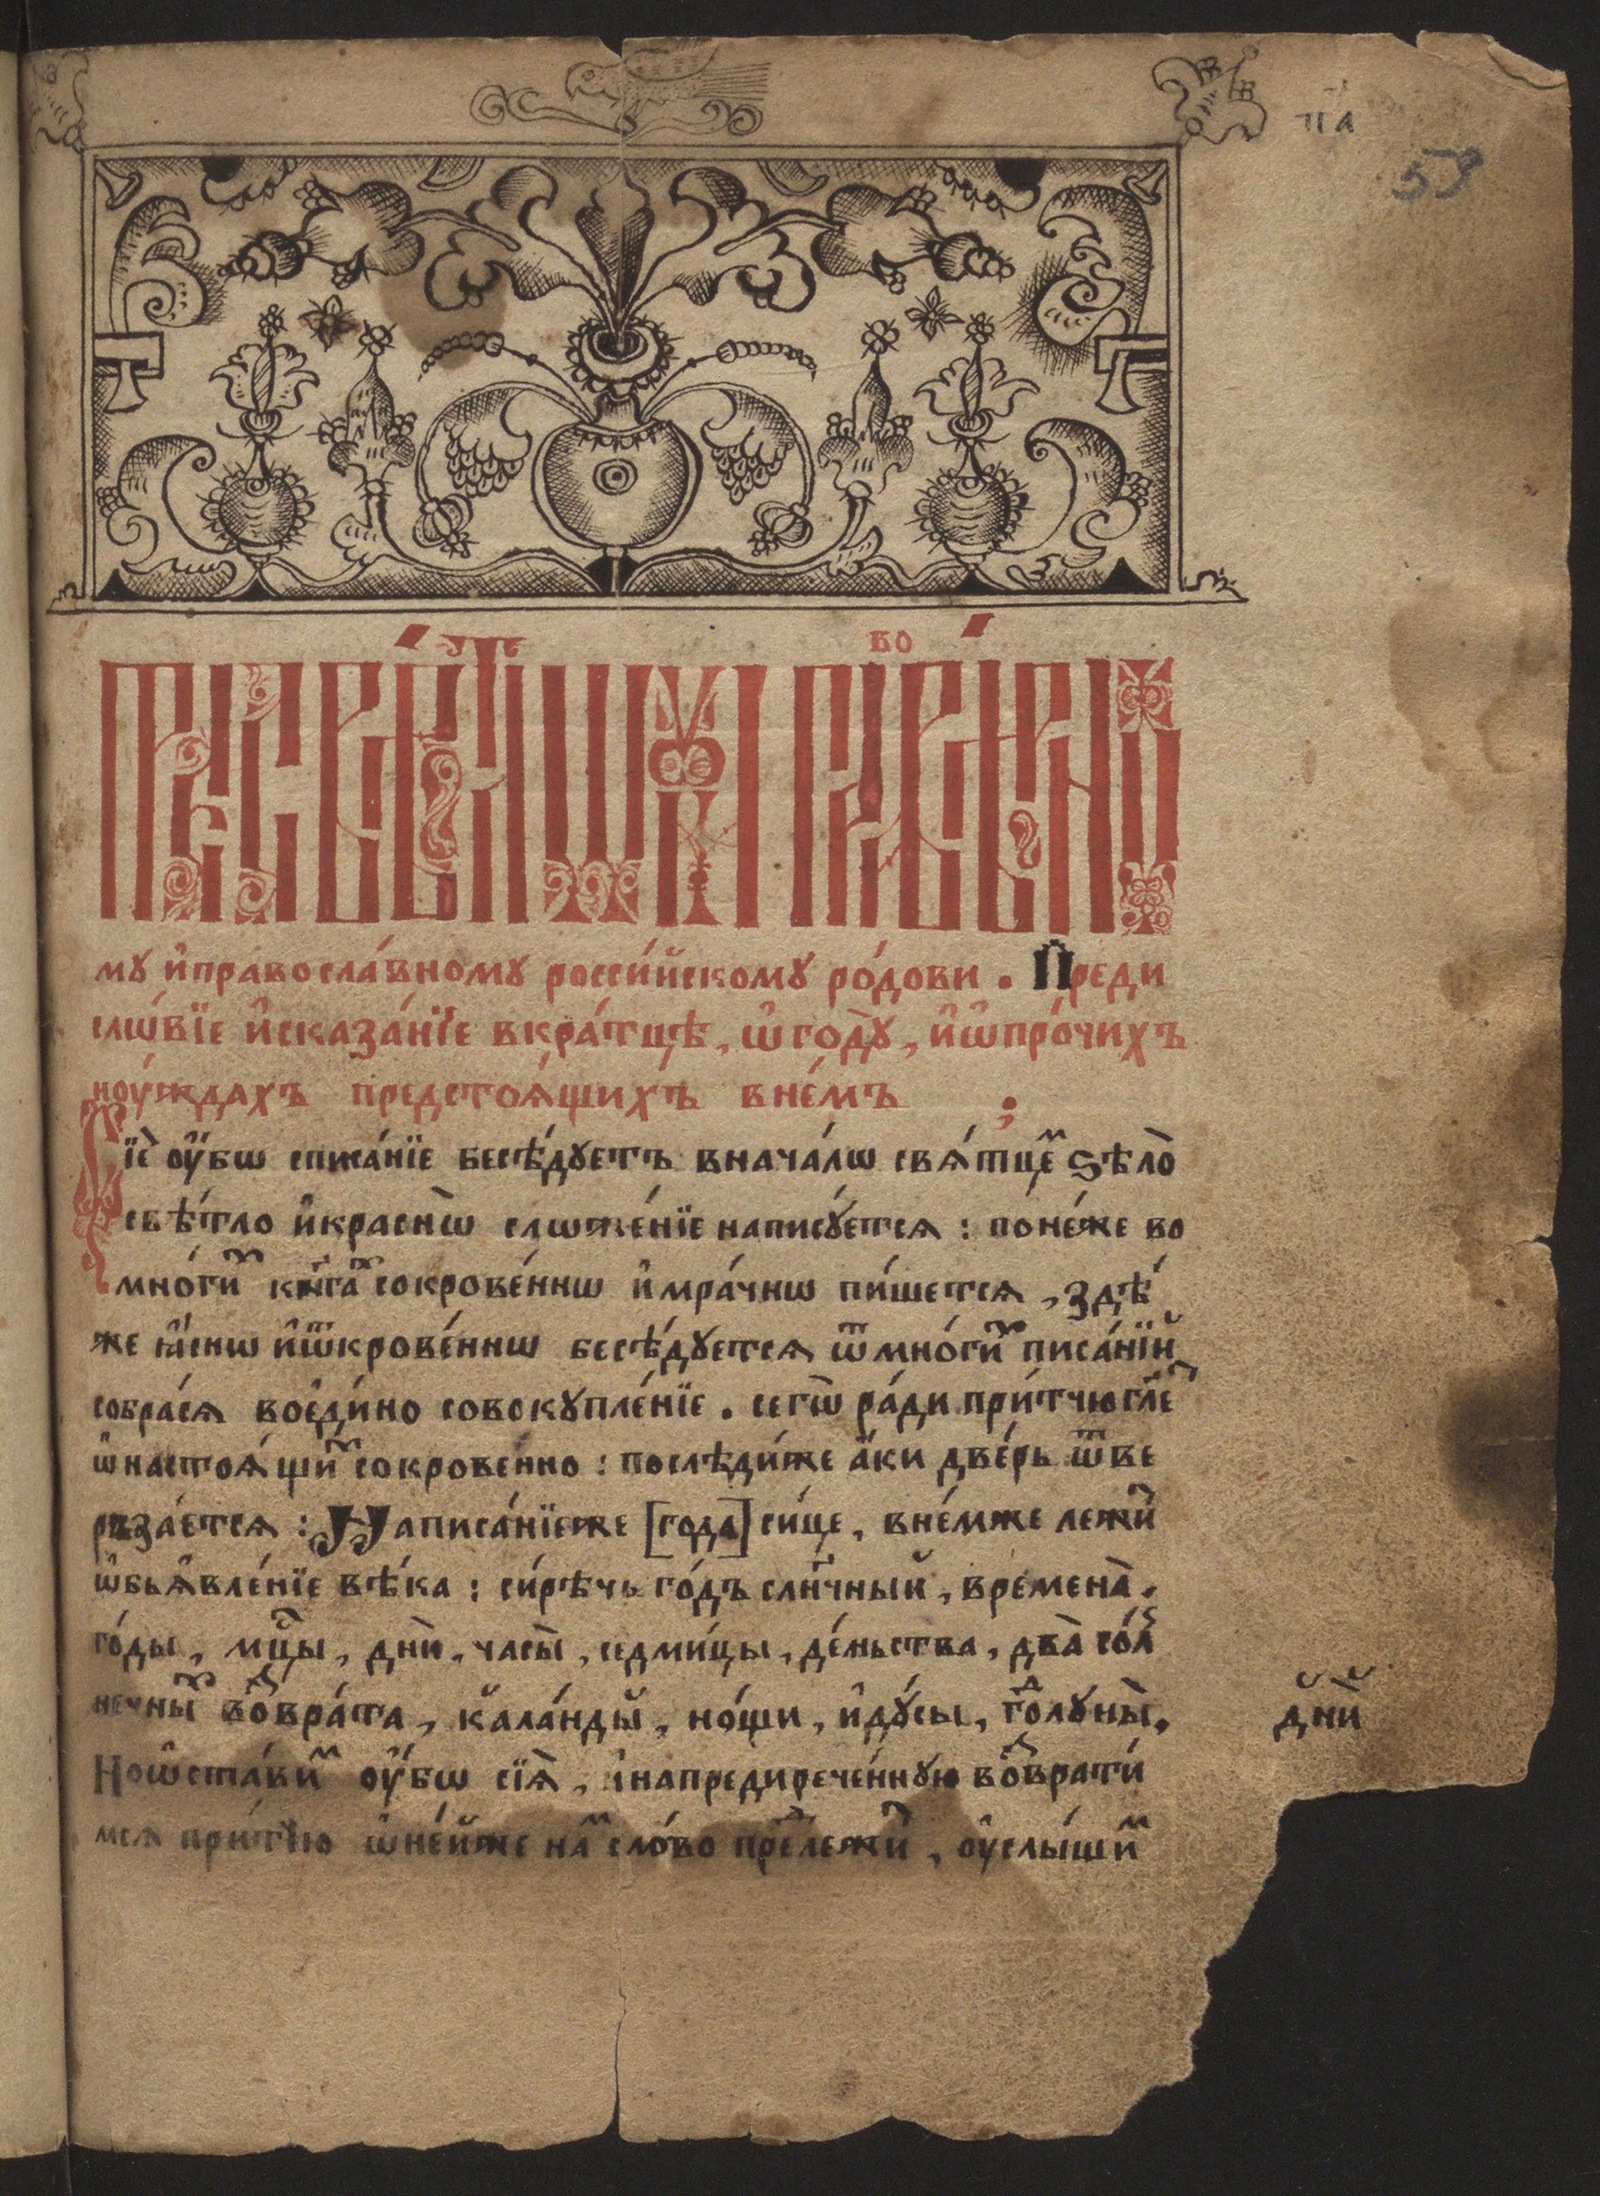 п҃а
59
во
Пресвѣтлому и правоверно
му и҆правосла́вному россі́йскому ро́дови . Преди
слѡ́вїе и҆сказа́нїе вкра́тцѣ , ѡ҆ го́дꙋ , и҆ѡ҆про́чихъ
ноу́ждахъ предстоѧ́щихъ вне́мъ
Сїѐ оу҆́бѡ списа́нїе бесѣ́дꙋетъ внача́лѡ свѧ́тцеⷨ ѕѣлѡ̀
свѣ́тло и҆красⷩ҇ѡ слѡже́нїе написꙋ́етсѧ : поне́же во
мно́гиⷯ кн҃гаⷯ сокрове́ннѡ и҆мра́чнѡ пи́шетсѧ , здѣ́
же ꙗ҆́снѡ и҆ѿкрове́ннѡ бесѣ́дꙋетсѧ ѿмно́гиⷯ писа́нїй
собра́сѧ вое҆ди́но совокꙋпле́нїе . сегѡ̀ ра́ди при́тчю гл҃еⷨ
ѡ҆настоѧ́щиⷯ сокрове́нно : послѣди́же а҆́ки две́рь ѿве
рза́етсѧ : Написа́нїеже [года] си́це , вне́мже лежиⷮ
ѡ҆бьѧвле́нїе вѣ́ка : си́рѣчь го́дъ слн҃чный , временà .
го́ды , мц҃ы , дни̂ , часы̀ , седми́цы , де́ньства , двà со́лⸯ
нечныⷯ воⷥвра́та , кала́нды , но́щи , и҆дꙋ́сы , гоⷣ лꙋны̀ .
дни̂й
Но ѡ҆ста́виⷨ оу҆́бѡ сїѧ̀ , і҆напредирече́ннꙋю воⷥврати́
мсѧ при́тчю ѡ҆не́йже на́ⷨ сло́во преⷣлежи́ⷮ , оу҆слы́шиⷨ